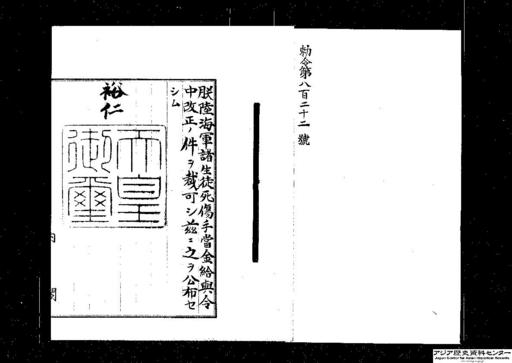 勅令第八百二十二號
朕陸海軍諸生徒死傷手當金給與令
中改正ノ件ヲ裁可シ茲ニ之ヲ公布セ
シム
裕仁
天皇
御璽
内閣
アジア歴史資料センター
Japan Center for Asian Historical Records